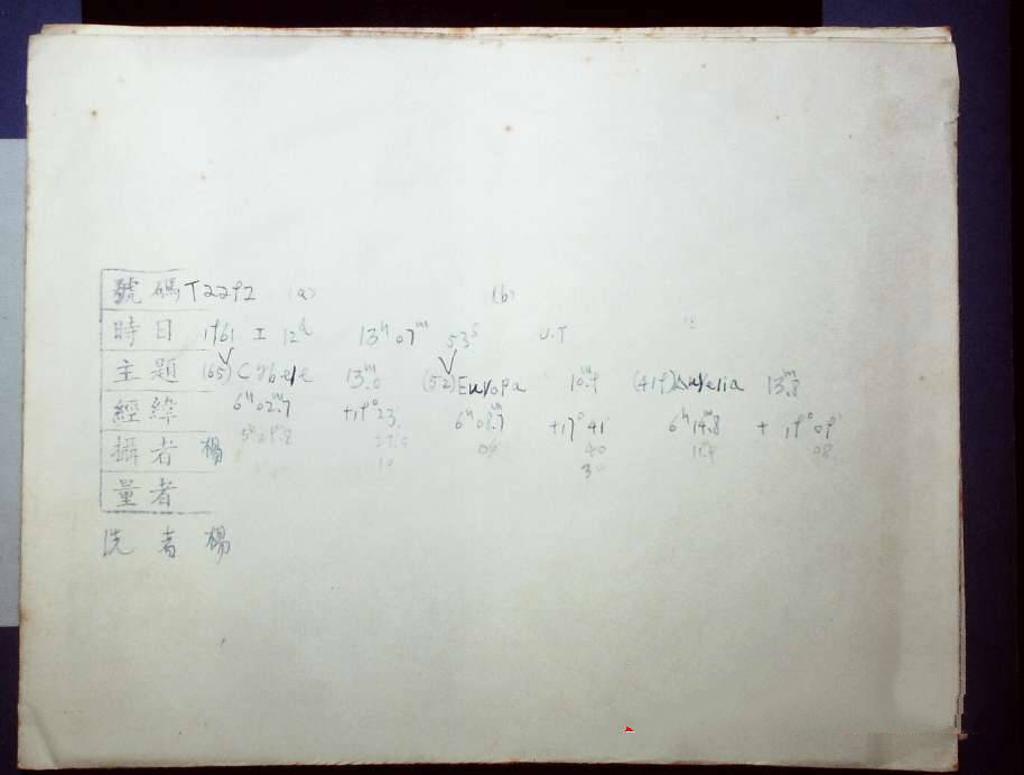 號碼 T2292 (a) (b)
時日 1961 I 12d 13h 07m 53s U.T
主題 (65) Cybele 13m.0 (52) Europa 10m.9 (419) Aurelia 13m.8
經緯 6h 02m.7 +19° 23' 6h 08m.7 +17° 41' 6h 14m.8 + 19° 09'
攝者 楊 40
量者
洗者 楊